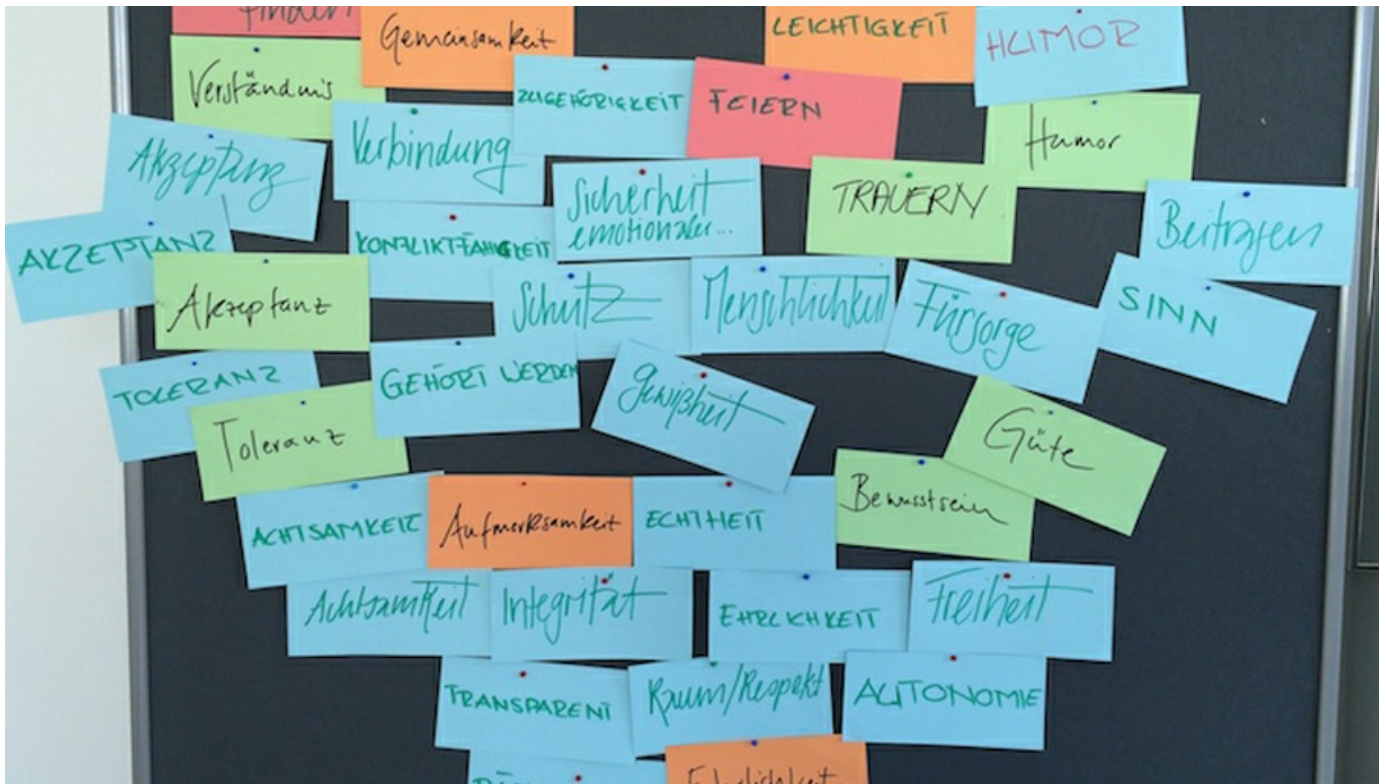 finden
Gemeinsamkeit
LEICHTIGKEIT
HUMOR
Verständnis
ZUGEHÖRIGKEIT
FEIERN
Akzeptanz
Verbindung
Humor
Sicherheit
emotionaler...
TRAUERN
Beitragen
AKZEPTANZ
KONFLIKTFÄHIGKEIT
Akzeptanz
Schutz
Menschlichkeit
Fürsorge
SINN
TOLERANZ
GEHÖRT WERDEN
Gewißheit
Toleranz
Güte
ACHTSAMKEIT
Aufmerksamkeit
ECHTHEIT
Bewusstsein
Achtsamkeit
Integrität
EHRLICHKEIT
Freiheit
TRANSPARENT
Raum/Respekt
AUTONOMIE